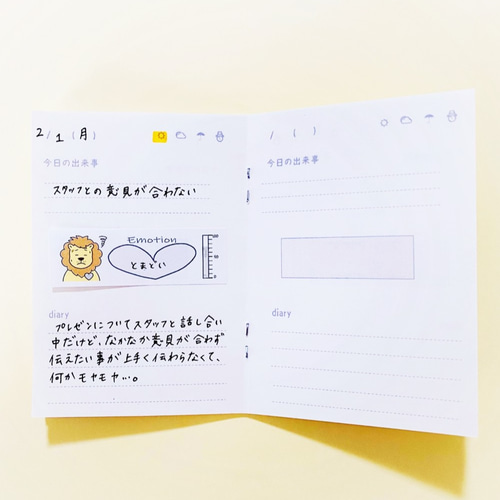 2/1(月)
今日の出来事
スタッフとの意見が合わない
Emotion
とまどい
diary
プレゼンについてスタッフと話し合い
中だけど、なかなか意見が合わず
伝えたい事が上手く伝わらなくて、
何かモヤモヤ…。
/ ( )
今日の出来事
diary